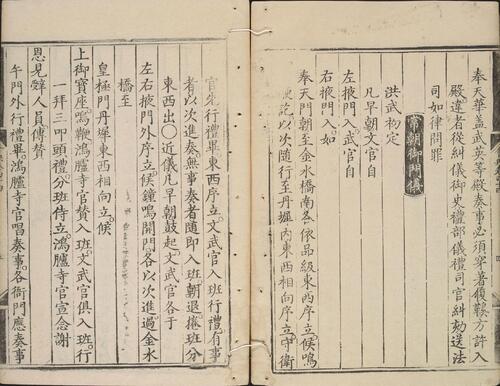 奉天華蓋武英等殿奏事必須穿著履鞵方許入
殿違者從糾儀御史禮部儀禮司官糾劾送法
司如律問罪
常朝御門儀
洪武初定
凡早朝文官自
左掖門入武官自
右掖門入如
奉天門朝至金水橋南各依品級東西序立候鳴
訖以次隨行至丹墀內東西相向序立守衛
官先行禮畢東西序立文武官入班行禮有事
者以次進奏無事奏者隨即入班朝退捲班分
東西出〇近儀凡早朝鼓起文武官各于
左右掖門外序立候鐘鳴開門各以次進過金水
橋至
皇極門丹墀東西相向立候
上御寶座鳴鞭鴻臚寺官贊入班文武官俱入班行
一拜三叩頭禮分班侍立鴻臚寺官宣念謝
恩見辭人員傳贊
午門外行禮畢鴻臚寺官唱奏事各衙門應奏事